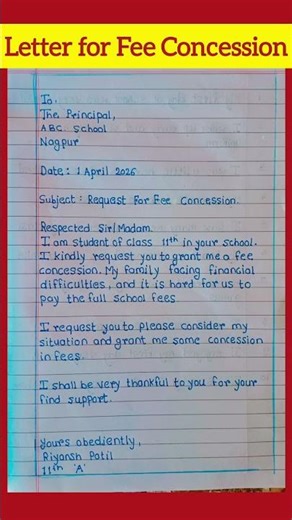 Letter for Fee Concession
To.
The Principal,
ABC School
Nagpur
Date: 1 April 2026
Subject: Request For Fee Concession.
Respected Sir/Madam.
I am student of class 11th in your school.
I kindly request you to grant me a fee
concession. My family facing financial
difficulties, and it is hard for us to
pay the full school fees
I request you to please consider my
situation and grant me some concession
in fees.
I shall be very thankful to you for your
find support.
Yours obediently,
Riyansh Patil
11th 'A'